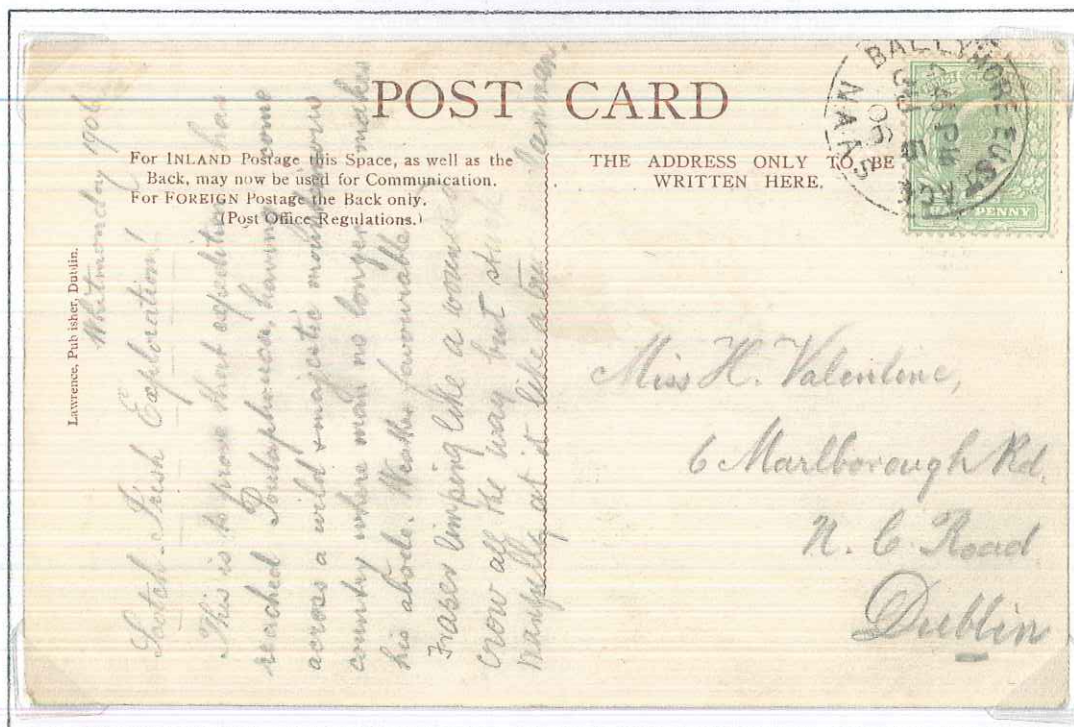 POST CARD
For INLAND Postage this Space, as well as the
Back, may now be used for Communication.
For FOREIGN Postage the Back only.
(Post Office Regulations.)
THE ADDRESS ONLY TO BE
WRITTEN HERE.
Lawrence, Publisher, Dublin.
BALLYMORE EUSTACE
NAAS
PENNY
Whitmonday 1906
Scotch-Irish Exploration!
This is to prove that expedition has
reached Poulaphouca, having come
across a wild & majestic mountainous
country where man no longer makes
his abode. Weather favourable
Fraser limping like a wounded
crow all the way but stuck
manfully at it like a
Miss H. Valentine,
6 Marlborough Rd.
N. C. Road
Dublin